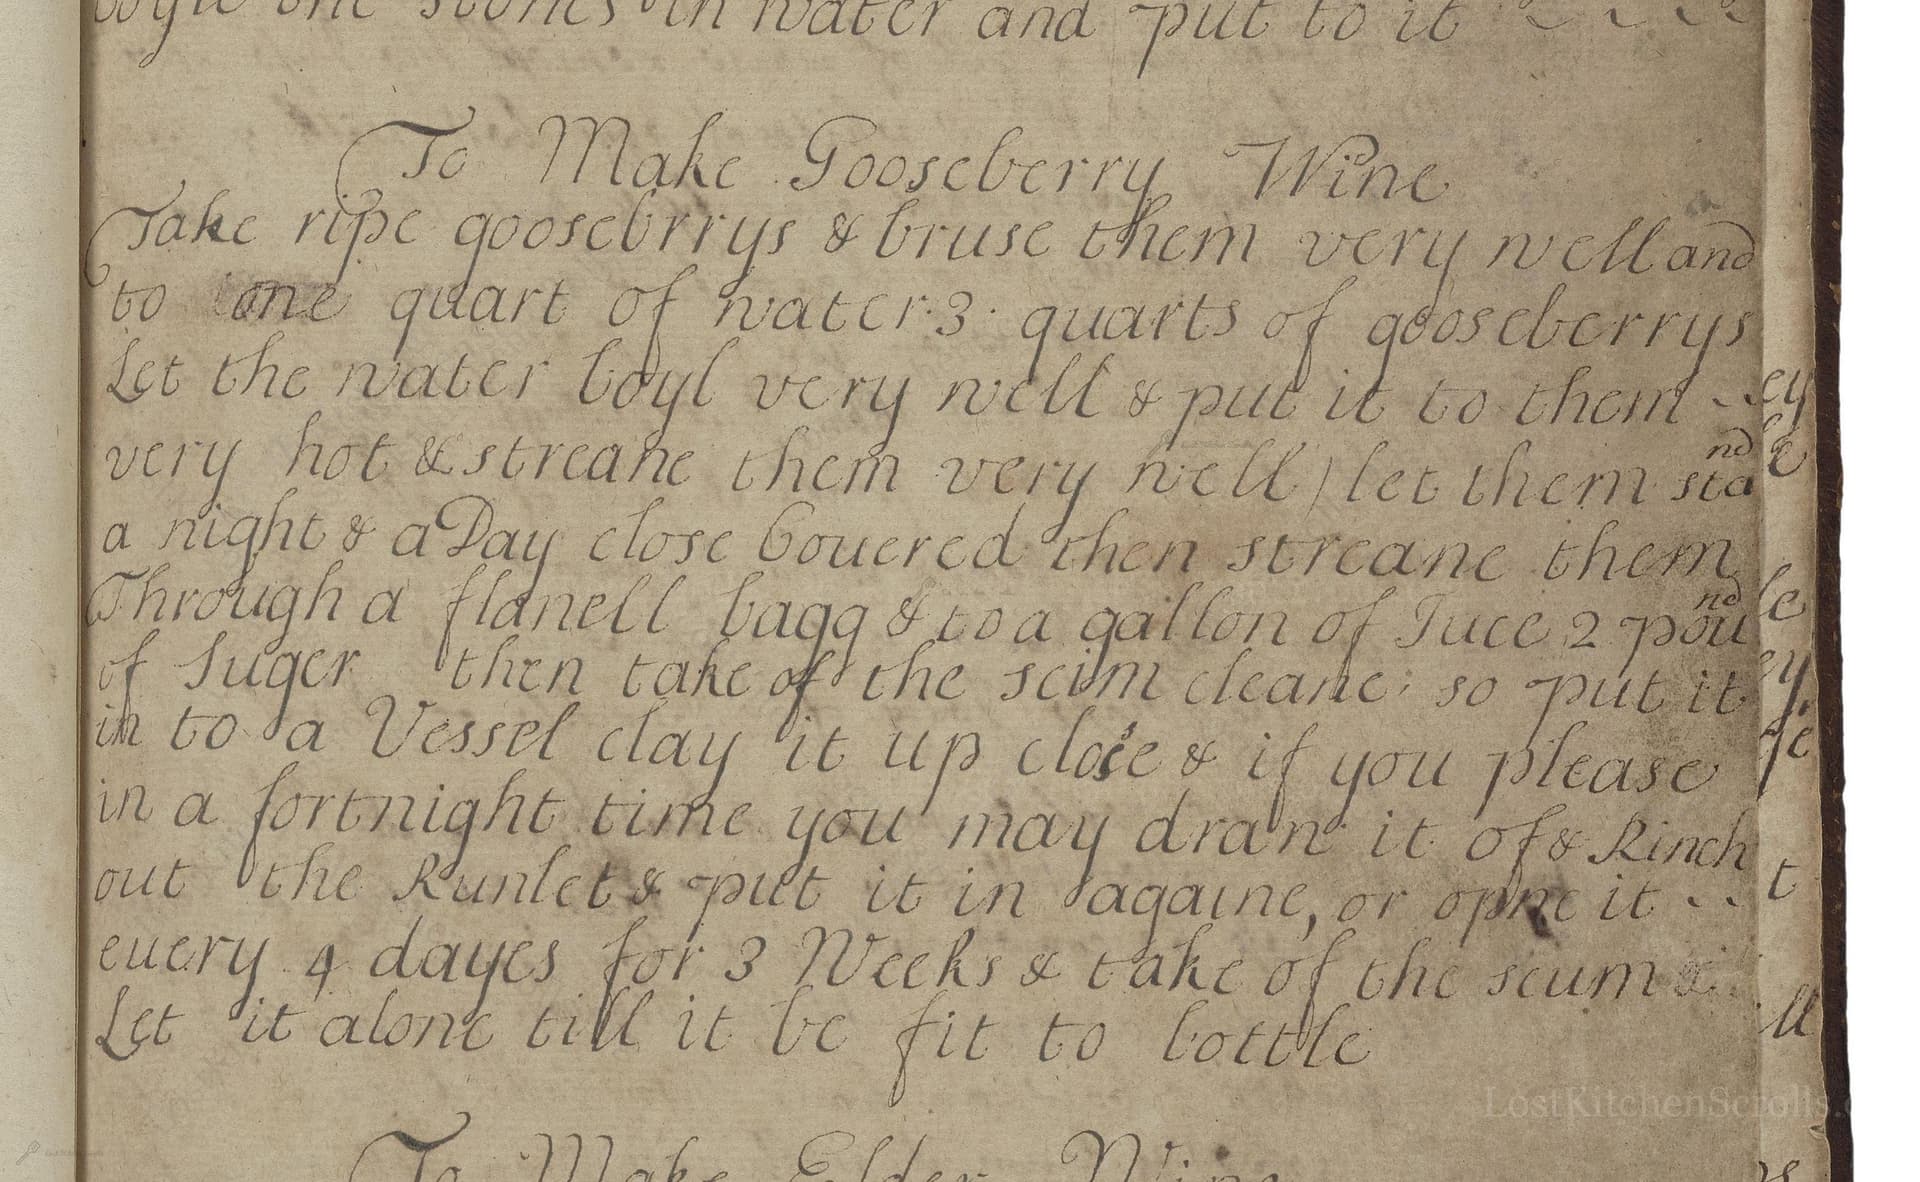 boyle the stones in water and put to it
To Make Gooseberry Wine
Take ripe goosebrrys & bruse them very well and
to one quart of water 3 quarts of gooseberrys
Let the water boyl very well & put it to them
very hot & streane them very well let them stand
a night & a Day close Couered then streane them
Through a flanell bagg & to a gallon of Juce 2 pound
of Suger then take of the scim cleane so put it
in to a Vessel clay it up close & if you please
in a fortnight time you may dran it of & Rinch
out the Runlet & put it in againe, or opne it
euery 4 dayes for 3 Weeks & take of the scum &
Let it alone till it be fit to bottle
LostKitchenScrolls
To Make Elder Wine